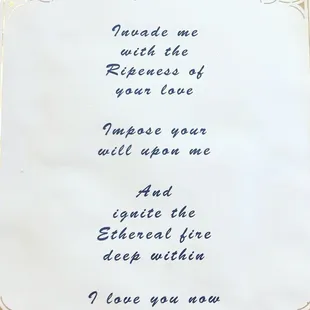 Invade me
with the
Ripeness of
your love
Impose your
will upon me
And
ignite the
Ethereal fire
deep within
I love you now